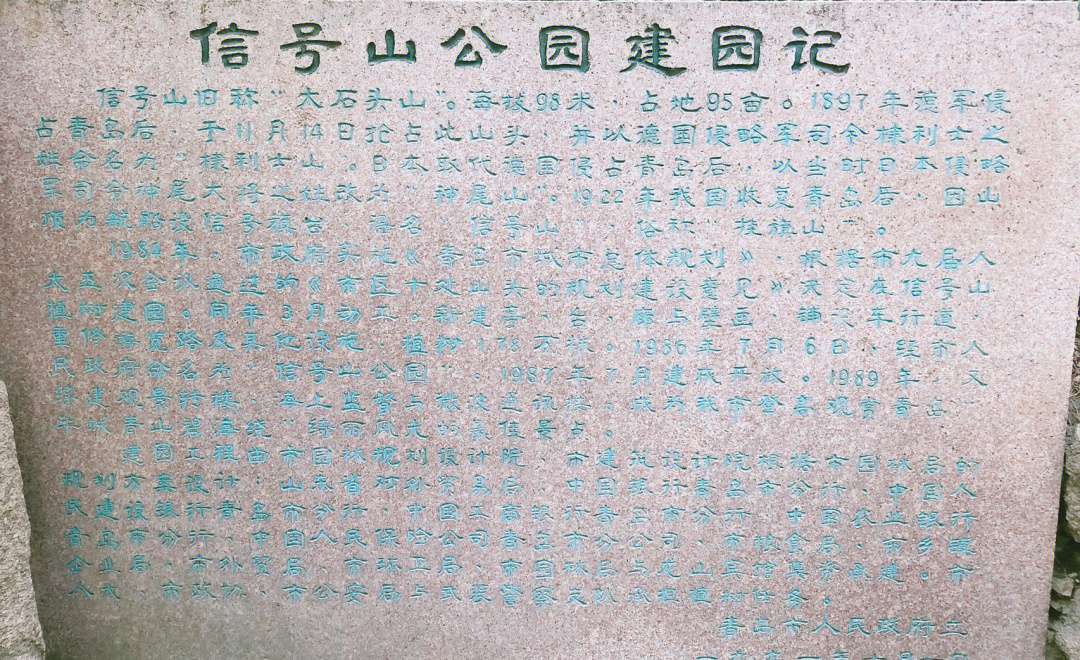 信号山公园建园记
信号山旧称“大石头山”。海拔98米，占地95亩。1897年德军侵
占青岛后，于11月14日抢占此山头，并以德国侵略军司令棣利士之
姓命名为“棣利士山”。日本取代德国侵占青岛后，以当时日本侵略
军司令神尾大将之姓改为“神尾山”。1922年我国收复青岛后，因山
顶为航船设信号旗台，得名“信号山”，俗称“挂旗山”。
1984年，市政府实施《青岛市城市总体规划》，根据市九届人
大五次会议通过的《市区十处山头的规划建设意见》，决定在信号山
植树建园。同年3月动工。新建亭台、廊与壁画，铺设车行道，
重修石阶路及其他设施，植树1.78万株。1986年7月6日，经市人
民政府命名为“信号山公园”。1987年7月建成开放。1989年，又
建观景楼，海上监督与微波通讯楼。成为我市登高观赏青岛“
青山碧海绕”绮丽风光的最佳景点。
建园工程由市园林规划设计院、市建筑设计院根据市园林局的
规划方案设计，山东省对外贸易局、中国银行青岛市分行、中国人
民建设银行青岛市分行、中国工商银行青岛市分行、中国农业银行
青岛市分行、中国人民保险公司青岛市分公司、市粮食局、市乡镇
企业局、市外贸局、市环卫局、市园林局与龙山宾馆集资承建。市
人大、市政协、市公安局与武装警察支队承担植树任务。
青岛市人民政府立